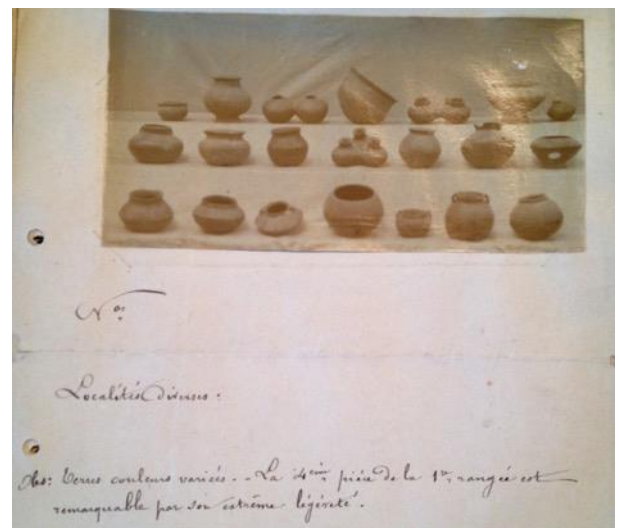 Nos
Localités Diverses :
Obs: Terres couleurs variées. - La 4ème pièce de la 1re rangée est
remarquable par son extrême légèreté.